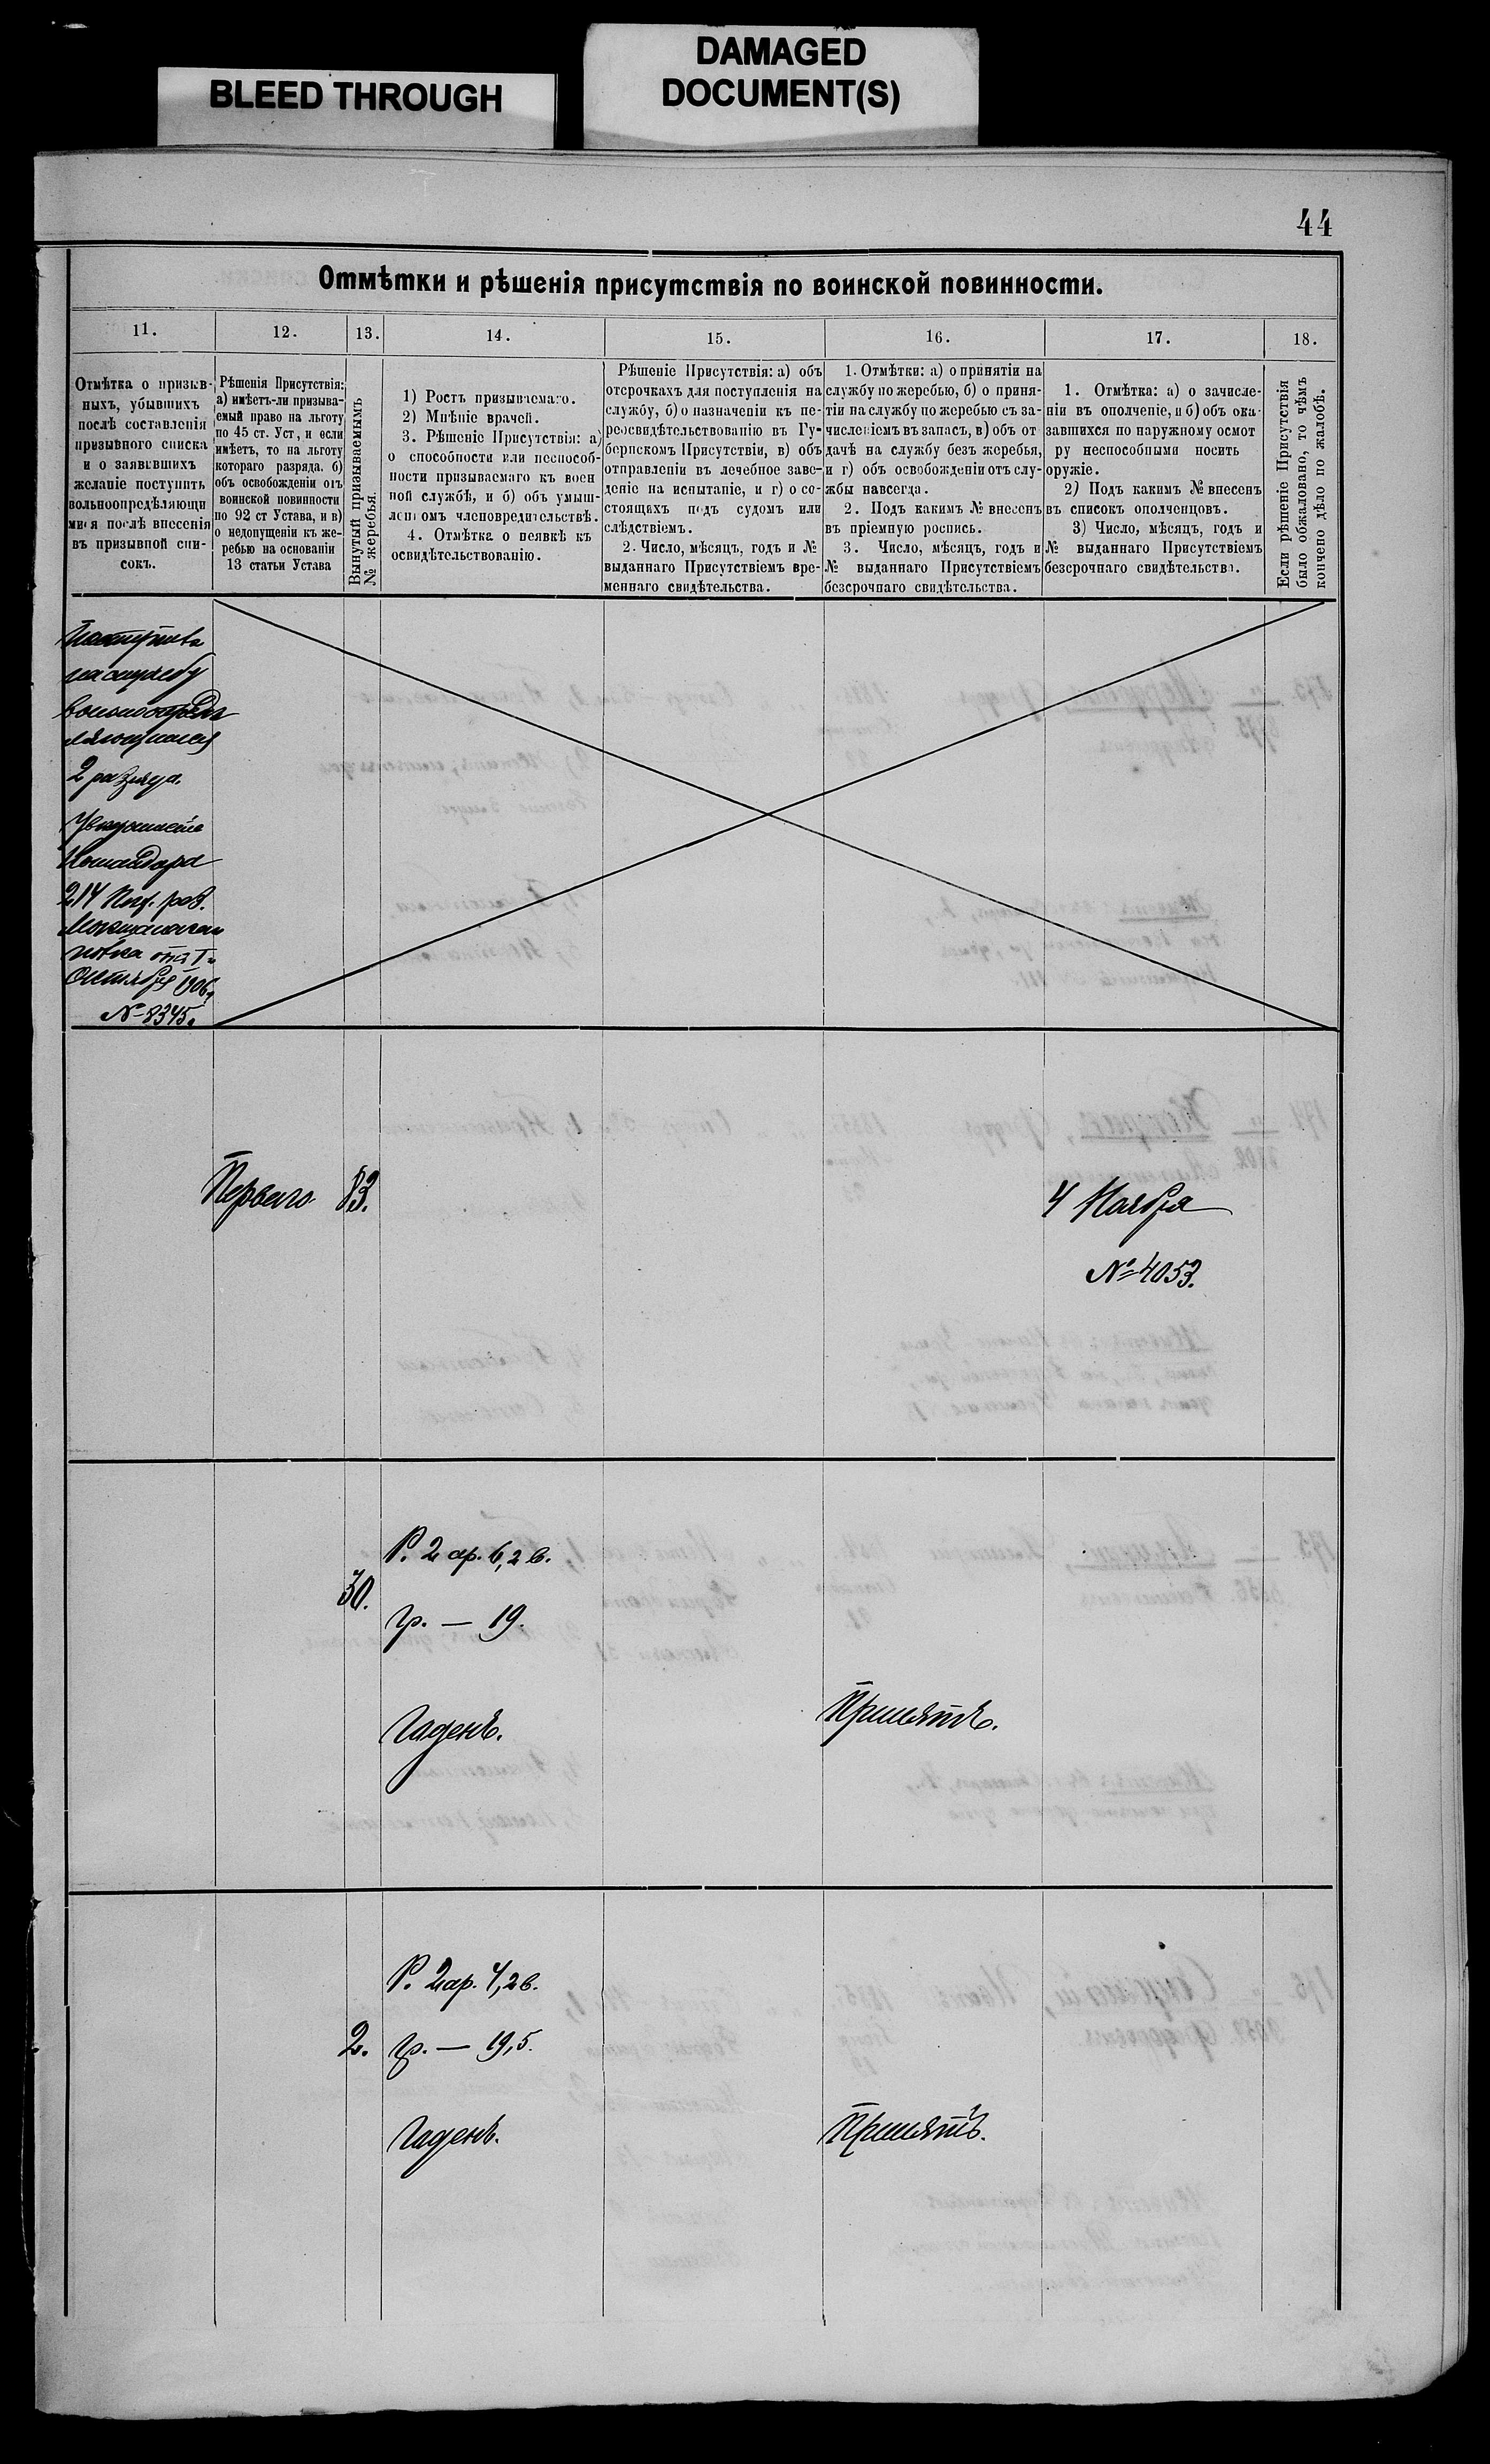 BLEED THROUGH
DAMAGED
DOCUMENT(S)
44
Отмѣтки и рѣшенія присутствія по воинской повинности.
11.
12.
13.
14.
15.
16.
17.
18.
Отмѣтка о призыв-
ныхъ, убывшихъ
послѣ составленія
призывного списка
и о заявившихъ
желаніе поступить
вольноопредѣляющи
мися послѣ внесенія
въ призывной спи-
сокъ.
Рѣшенія Присутствія:
а) имѣетъ-ли призыва-
емый право на льготу
по 45 ст. Уст, и если
имѣетъ, то на льготу
котораго разряда. б)
объ освобожденіи отъ
воинской повинности
по 92 ст Устава, и в)
о недопущеніи къ же-
ребью на основаніи
13 статьи Устава
Вынутый призываемымъ
№ жеребья.
1) Ростъ призываемаго.
2) Мнѣніе врачей.
3. Рѣшеніе Присутствія: а)
о способности или неспособ-
ности призываемаго къ воен
ной службѣ, и б) объ умыш-
ленномъ членовредительствѣ.
4. Отмѣтка о неявкѣ къ
освидѣтельствованію.
Рѣшеніе Присутствія: а) объ
отсрочкахъ для поступленія на
службу, б) о назначеніи къ пе-
реосвидѣтельствованію въ Гу-
бернскомъ Присутствіи, в) объ
отправленіи въ лечебное заве-
деніе на испытаніе, и г) о со-
стоящахъ подъ судомъ или
слѣдствіемъ.
2. Число, мѣсяцъ, годъ и №
выданнаго Присутствіемъ вре-
меннаго свидѣтельства.
1. Отмѣтки: а) о принятіи на
службу по жеребью, б) о приня-
тіи на службу по жеребью съ за-
численіемъ въ запасъ, в) объ от
дачѣ на службу безъ жеребья,
и г) объ освобожденіи отъ слу-
жбы навсегда.
2. Подъ какимъ № внесенъ
въ пріемную роспись.
3. Число, мѣсяцъ, годъ и
№ выданнаго Присутствіемъ
безсрочнаго свидѣтельства.
1. Отмѣтка: а) о зачисле-
ніи въ ополченіе, и б) объ ока-
завшихся по наружному осмот
ру неспособными носить
оружіе.
2) Подъ какимъ № внесенъ
въ списокъ ополченцовъ.
3) Число, мѣсяцъ, годъ и
№ выданнаго Присутствіемъ
безсрочнаго свидѣтельства.
Если рѣшеніе Присутствія
было обжаловано, то чѣмъ
кончено дѣло по жалобѣ.
на службу
вольноопредѣ
ляющимся
2 разряда.
Командира
214 Пѣх. рез.
полка отъ
Октября 1906г
№ 8345.
Перваго
83.
4 Ноября
№ 4053.
30.
Р. 2 ар. 6,2 в.
гр. — 19.
Годенъ.
Принятъ.
2.
Р. 2 ар. 4,2 в.
гр. — 19,5.
Годенъ.
Принятъ.